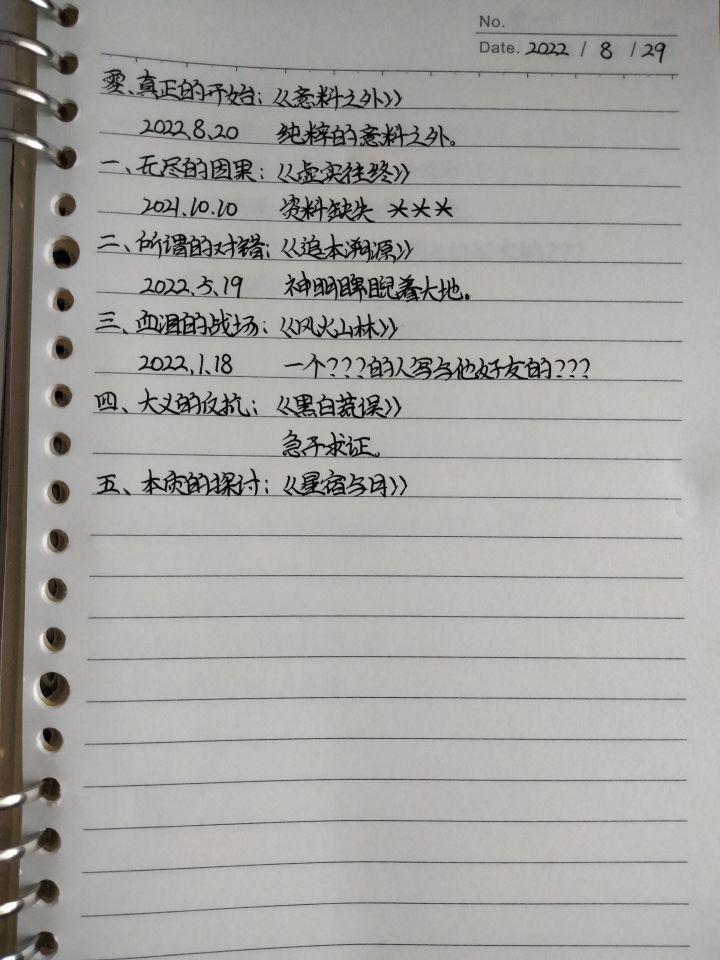 No.
Date. 2022 / 8 / 29
零、真正的开始:《意料之外》
2022.8.20 纯粹的意料之外。
一、无尽的因果:《虚实往终》
2021.10.10 资料缺失 ***
二、所谓的对错:《追本溯源》
2022.5.19 神明睥睨着大地。
三、血泪的战场:《风火山林》
2022.1.18 一个???的人写与他好友的???
四、大义的反抗:《黑白荒误》
急于求证。
五、本质的探讨:《星宿与月》